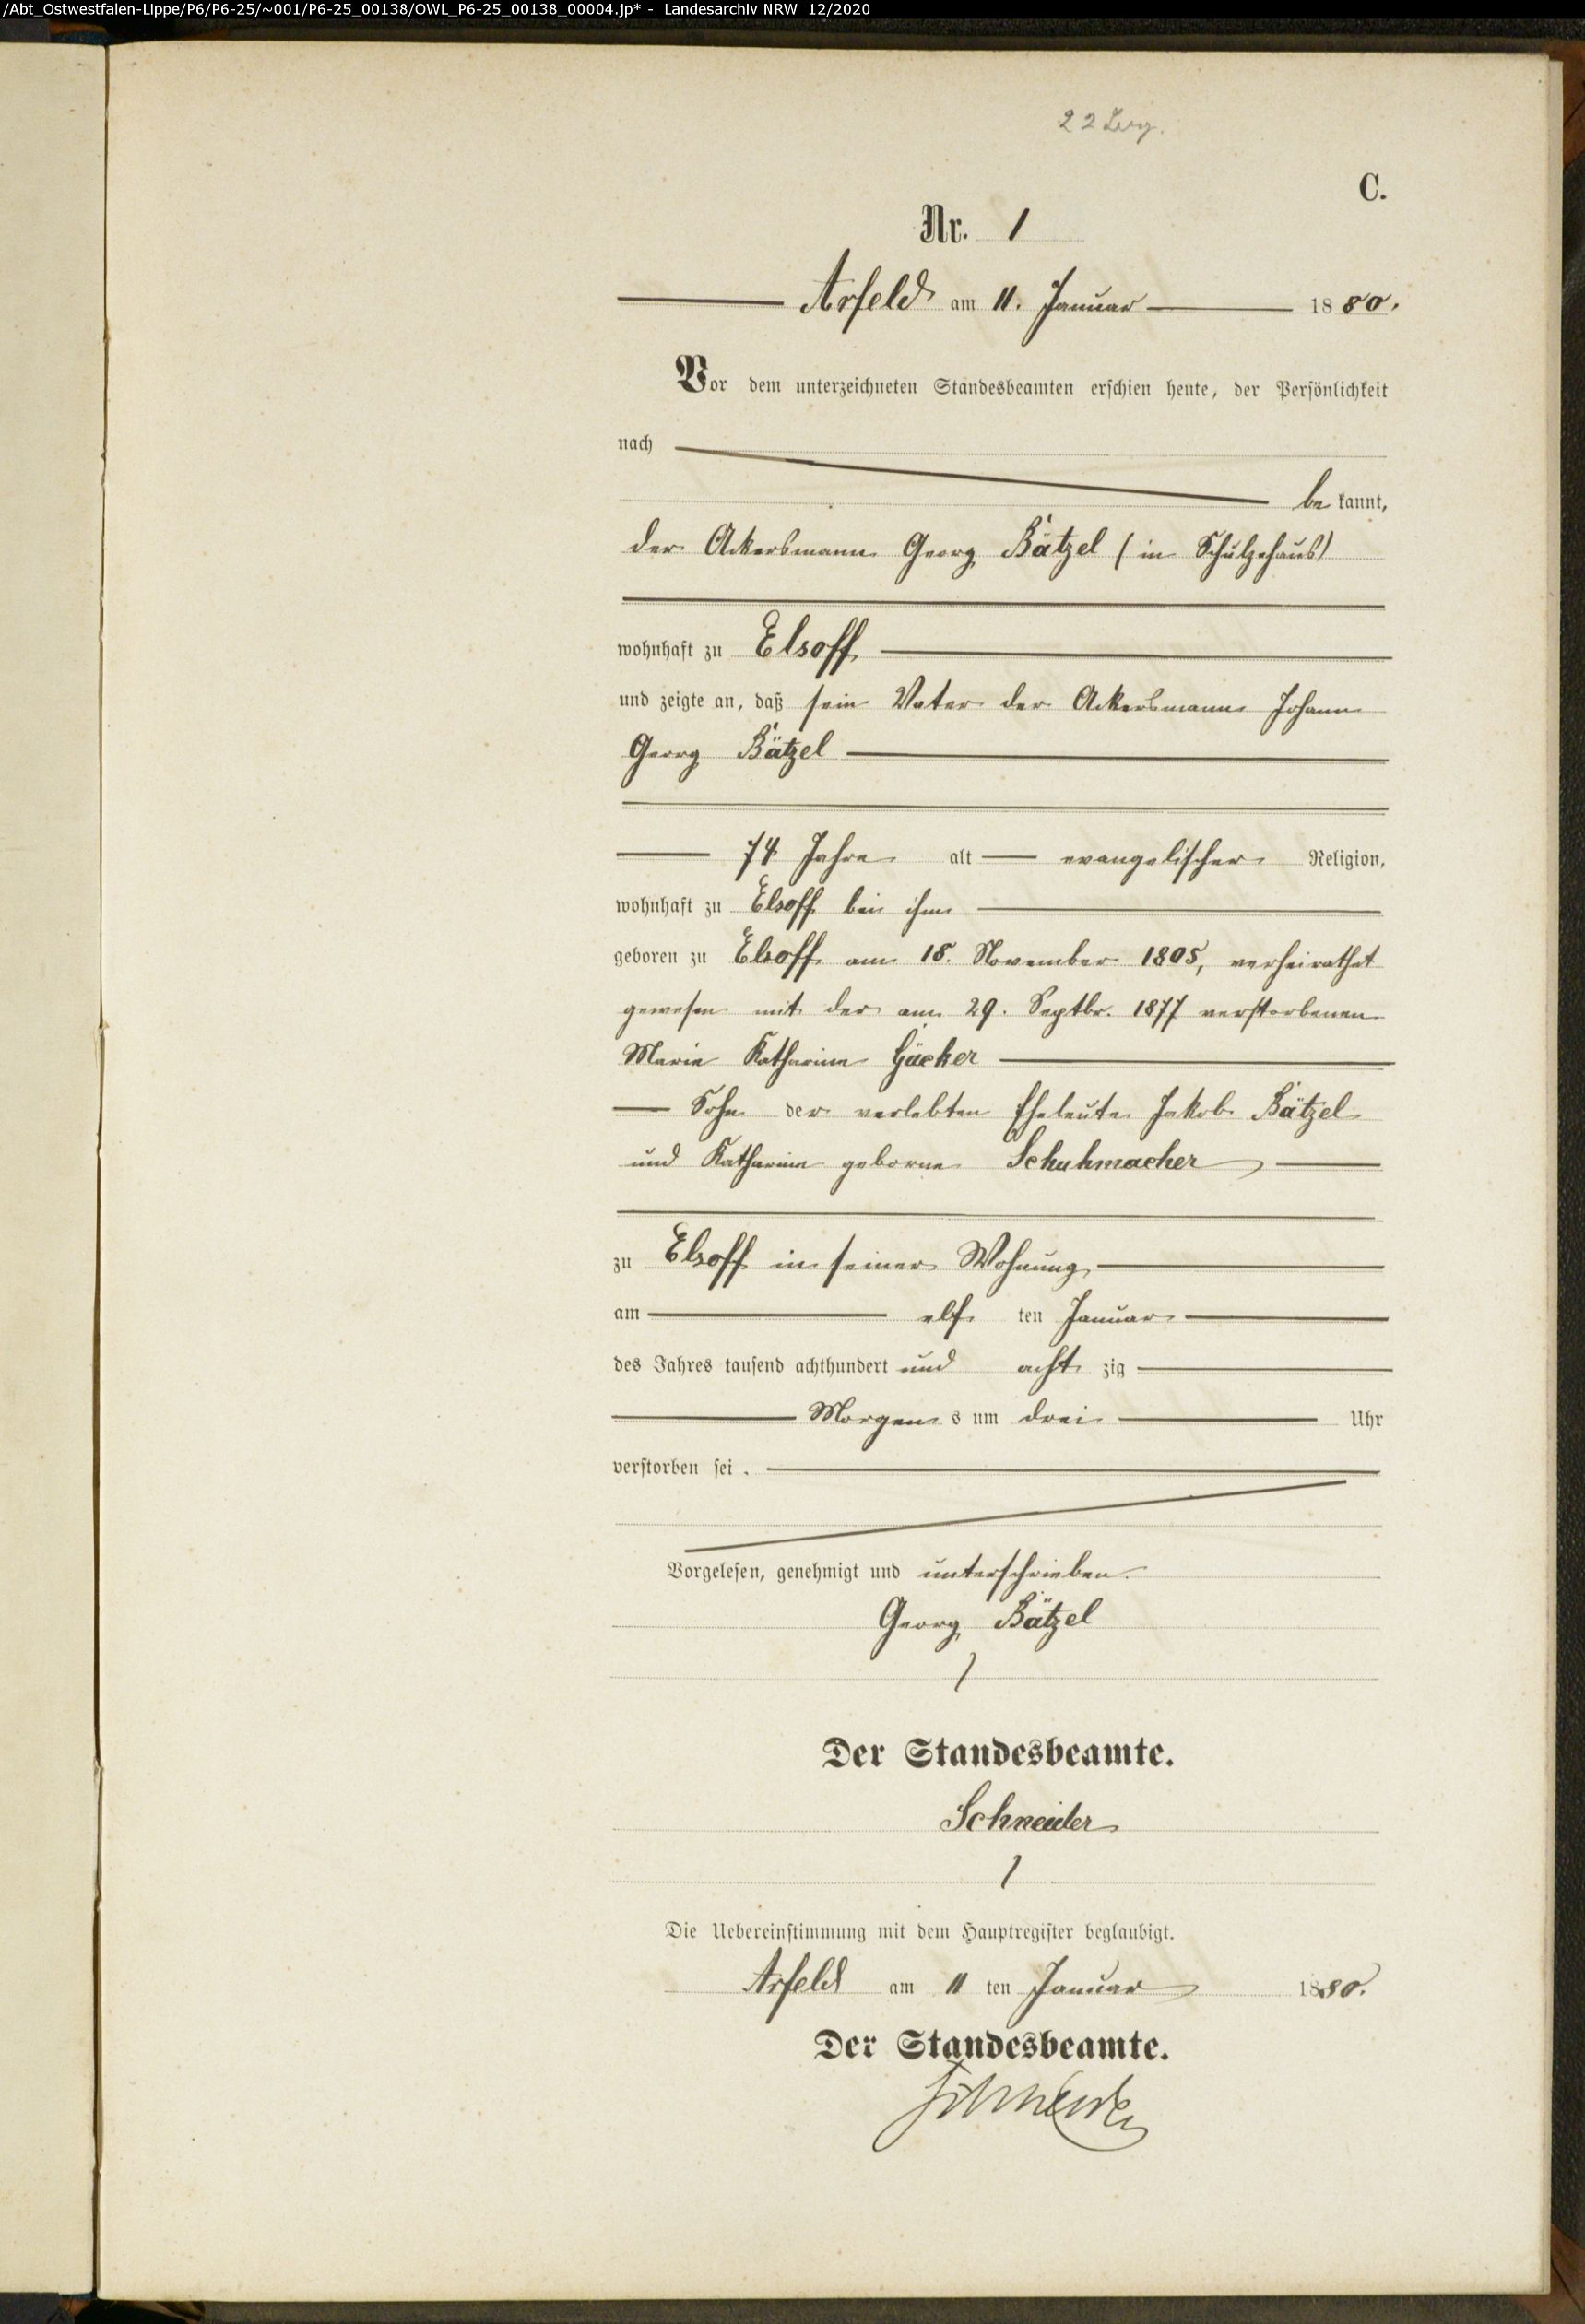 /Abt_Ostwestfalen-Lippe/P6/P6-25/~001/P6-25_00138/OWL_P6-25_00138_00004.jp* - Landesarchiv NRW 12/2020
22
C.
Nr. 1
Arfeld am 11. Januar 1880.
Vor dem unterzeichneten Standesbeamten erschien heute, der Persönlichkeit
nach
be kannt,
der Ackersmann Georg Bätzel (in Schulzehaus)
wohnhaft zu Elsoff
und zeigte an, daß sein Vater der Ackersmann Johann
Georg Bätzel
74 Jahre alt evangelischer Religion,
wohnhaft zu Elsoff bei ihm
geboren zu Elsoff am 18. November 1805, verheirathet
gewesen mit der am 29. Septbr. 1877 verstorbenen
Marie Katharine Gücker
Sohn der verlebten Eheleute Jakob Bätzel
und Katharine geborne Schuhmacher
zu Elsoff in seiner Wohnung
am elf ten Januar
des Jahres tausend achthundert und acht zig
Morgen s um drei Uhr
verstorben sei.
Vorgelesen, genehmigt und unterschrieben.
Georg Bätzel
Der Standesbeamte.
Schneider
Die Uebereinstimmung mit dem Hauptregister beglaubigt.
Arfeld am 11 ten Januar 1880.
Der Standesbeamte.
Schneider